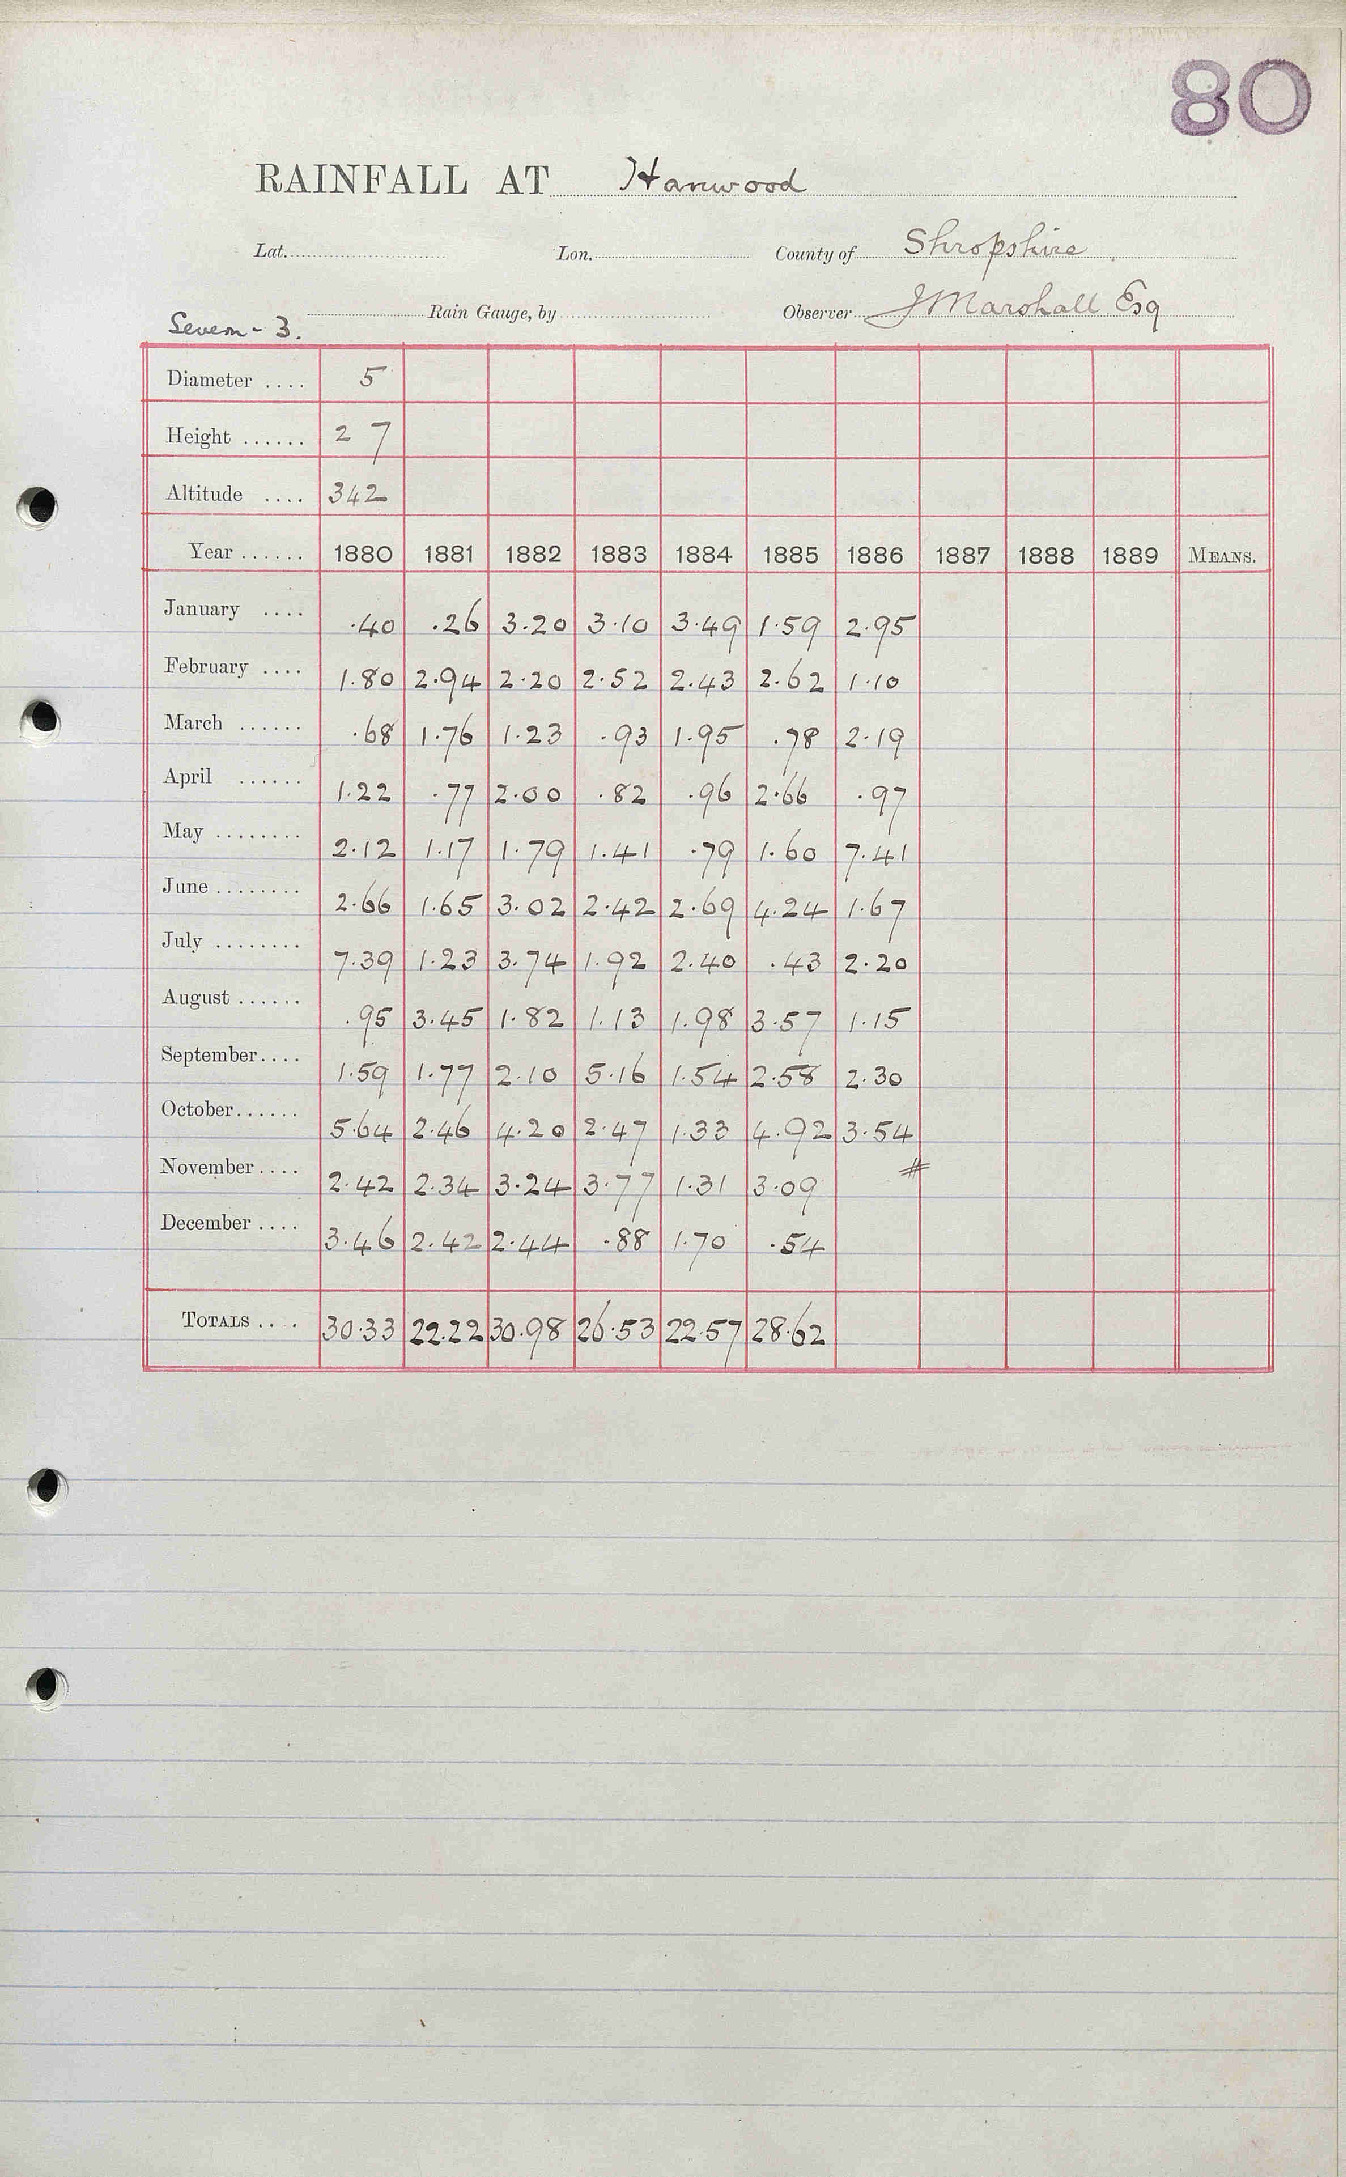 80
RAINFALL AT Hanwood
Lat. Lon. County of Shropshire
Rain Gauge, by Observer J Marshall Esq
Severn - 3.
Diameter .... 5
Height ...... 2 7
Altitude .... 342
Year ...... 1880 1881 1882 1883 1884 1885 1886 1887 1888 1889 MEANS.
January .... .40 .26 3.20 3.10 3.49 1.59 2.95
February .... 1.80 2.94 2.20 2.52 2.43 2.62 1.10
March ...... .68 1.76 1.23 .93 1.95 .78 2.19
April ...... 1.22 .77 2.00 .82 .96 2.66 .97
May ........ 2.12 1.17 1.79 1.41 .79 1.60 7.41
June ........ 2.66 1.65 3.02 2.42 2.69 4.24 1.67
July ........ 7.39 1.23 3.74 1.92 2.40 .43 2.20
August ...... .95 3.45 1.82 1.13 1.98 3.57 1.15
September.... 1.59 1.77 2.10 5.16 1.54 2.58 2.30
October...... 5.64 2.46 4.20 2.47 1.33 4.92 3.54
November.... 2.42 2.34 3.24 3.77 1.31 3.09 #
December .... 3.46 2.42 2.44 .88 1.70 .54
TOTALS .... 30.33 22.22 30.98 26.53 22.57 28.62